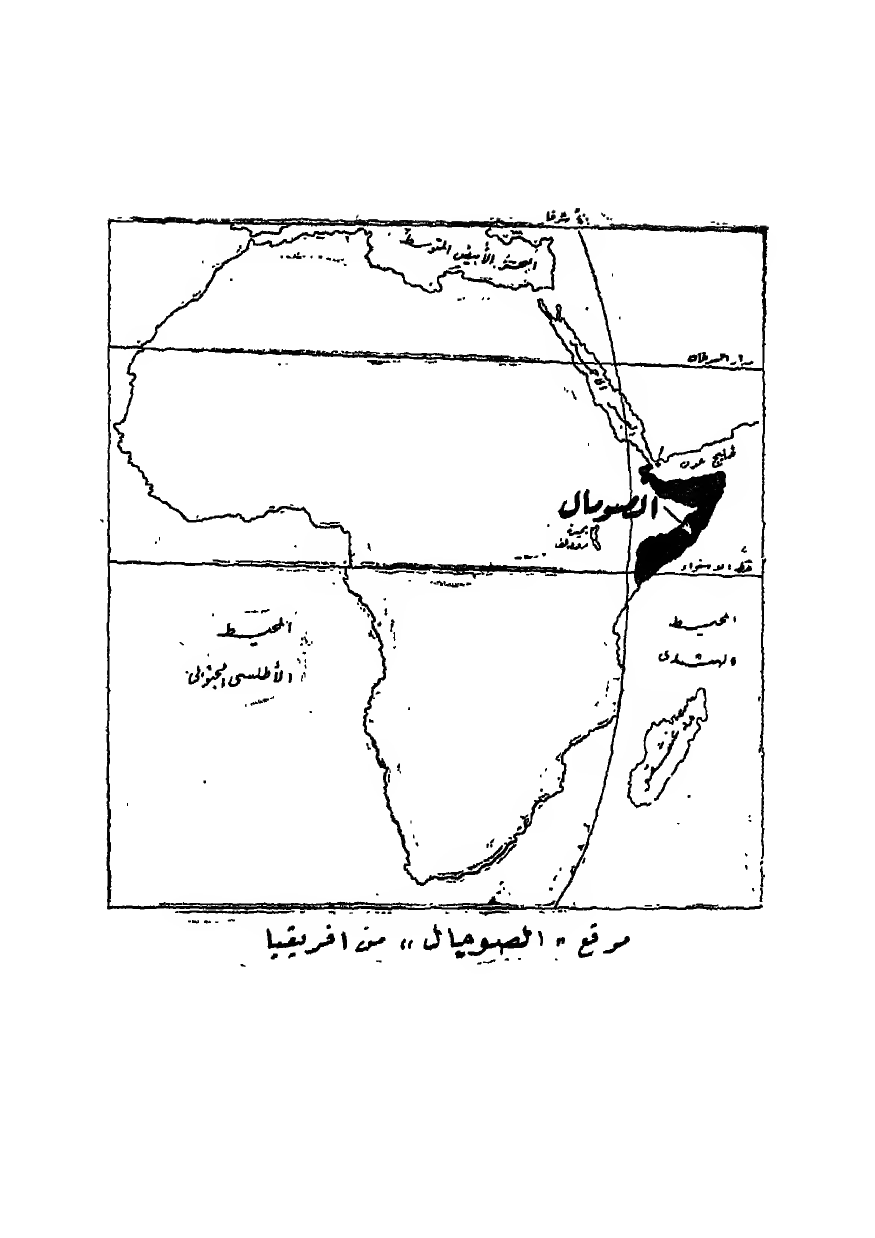 شرقا
البحر الأبيض المتوسط
مدار السرطان
الأحمر
خليج عدن
الصومال
بحيرة
خط الاستواء
المحيط
الهندى
المحيط
الأطلسى الجنوبى
موقع « الصومال » من افريقيا